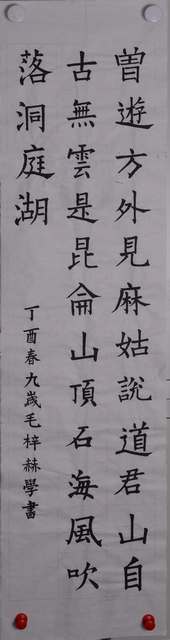 曽遊方外見麻姑說道君山自
古無雲是昆侖山頂石海風吹
落洞庭湖
丁酉春九歲毛梓赫學書